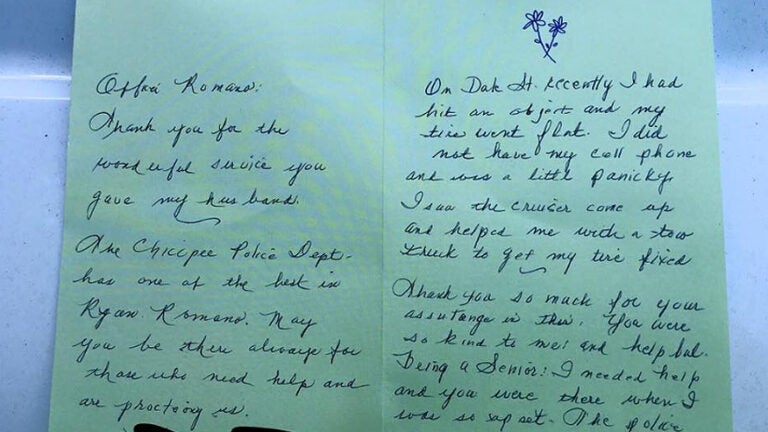 Offici Romano:
Thank you for the
wonderful service you
gave my husband.
The Chicipee Police Dept.
has one of the best in
Ryan Romano. May
you be there always for
those who need help and
are practiong us.
On Oak St. recently I had
hit an object and my
tire went flat. I did
not have my cell phone
and was a little panicky
I saw the cruiser come up
and helped me with a tow
truck to get my tire fixed
Thank you so much for your
assutange in this. You were
so kind to me: and help bul.
Being a Senior: I needed help
and you were there when I
was so up set. The police